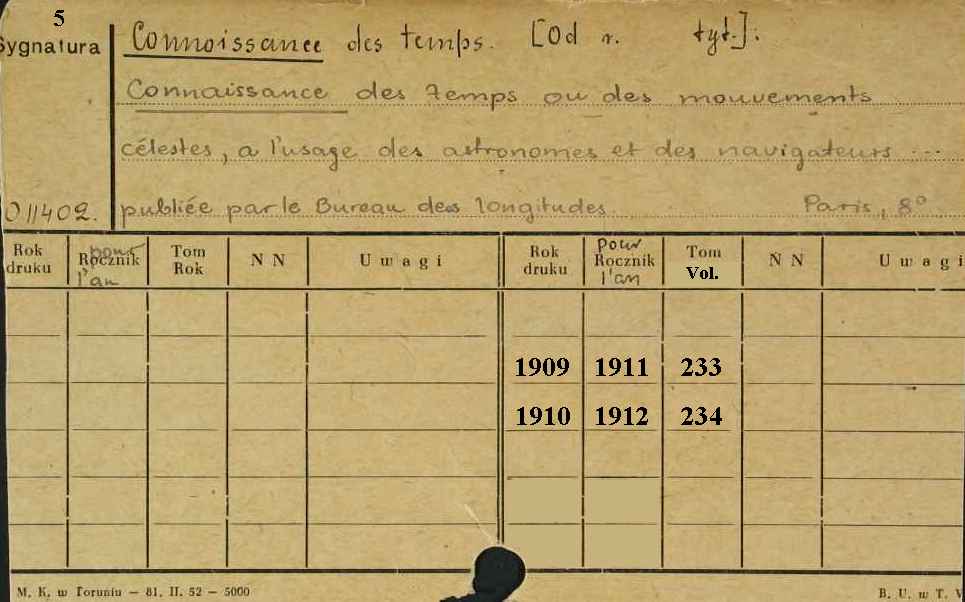 5
Sygnatura
Connoissance des temps. [Od r. tyt.]:
Connaissance des temps ou des mouvements
célestes, a l'usage des astronomes et des navigateurs ...
011402. publiée par le Bureau des longitudes Paris, 8°
Rok druku pour Rocznik l'an Tom Rok N N Uwagi Rok druku pour Rocznik l'an Tom Vol. N N Uwagi
1909 1911 233
1910 1912 234
M. K. w Toruniu — 81. II. 52 — 5000 B. U. w T. V